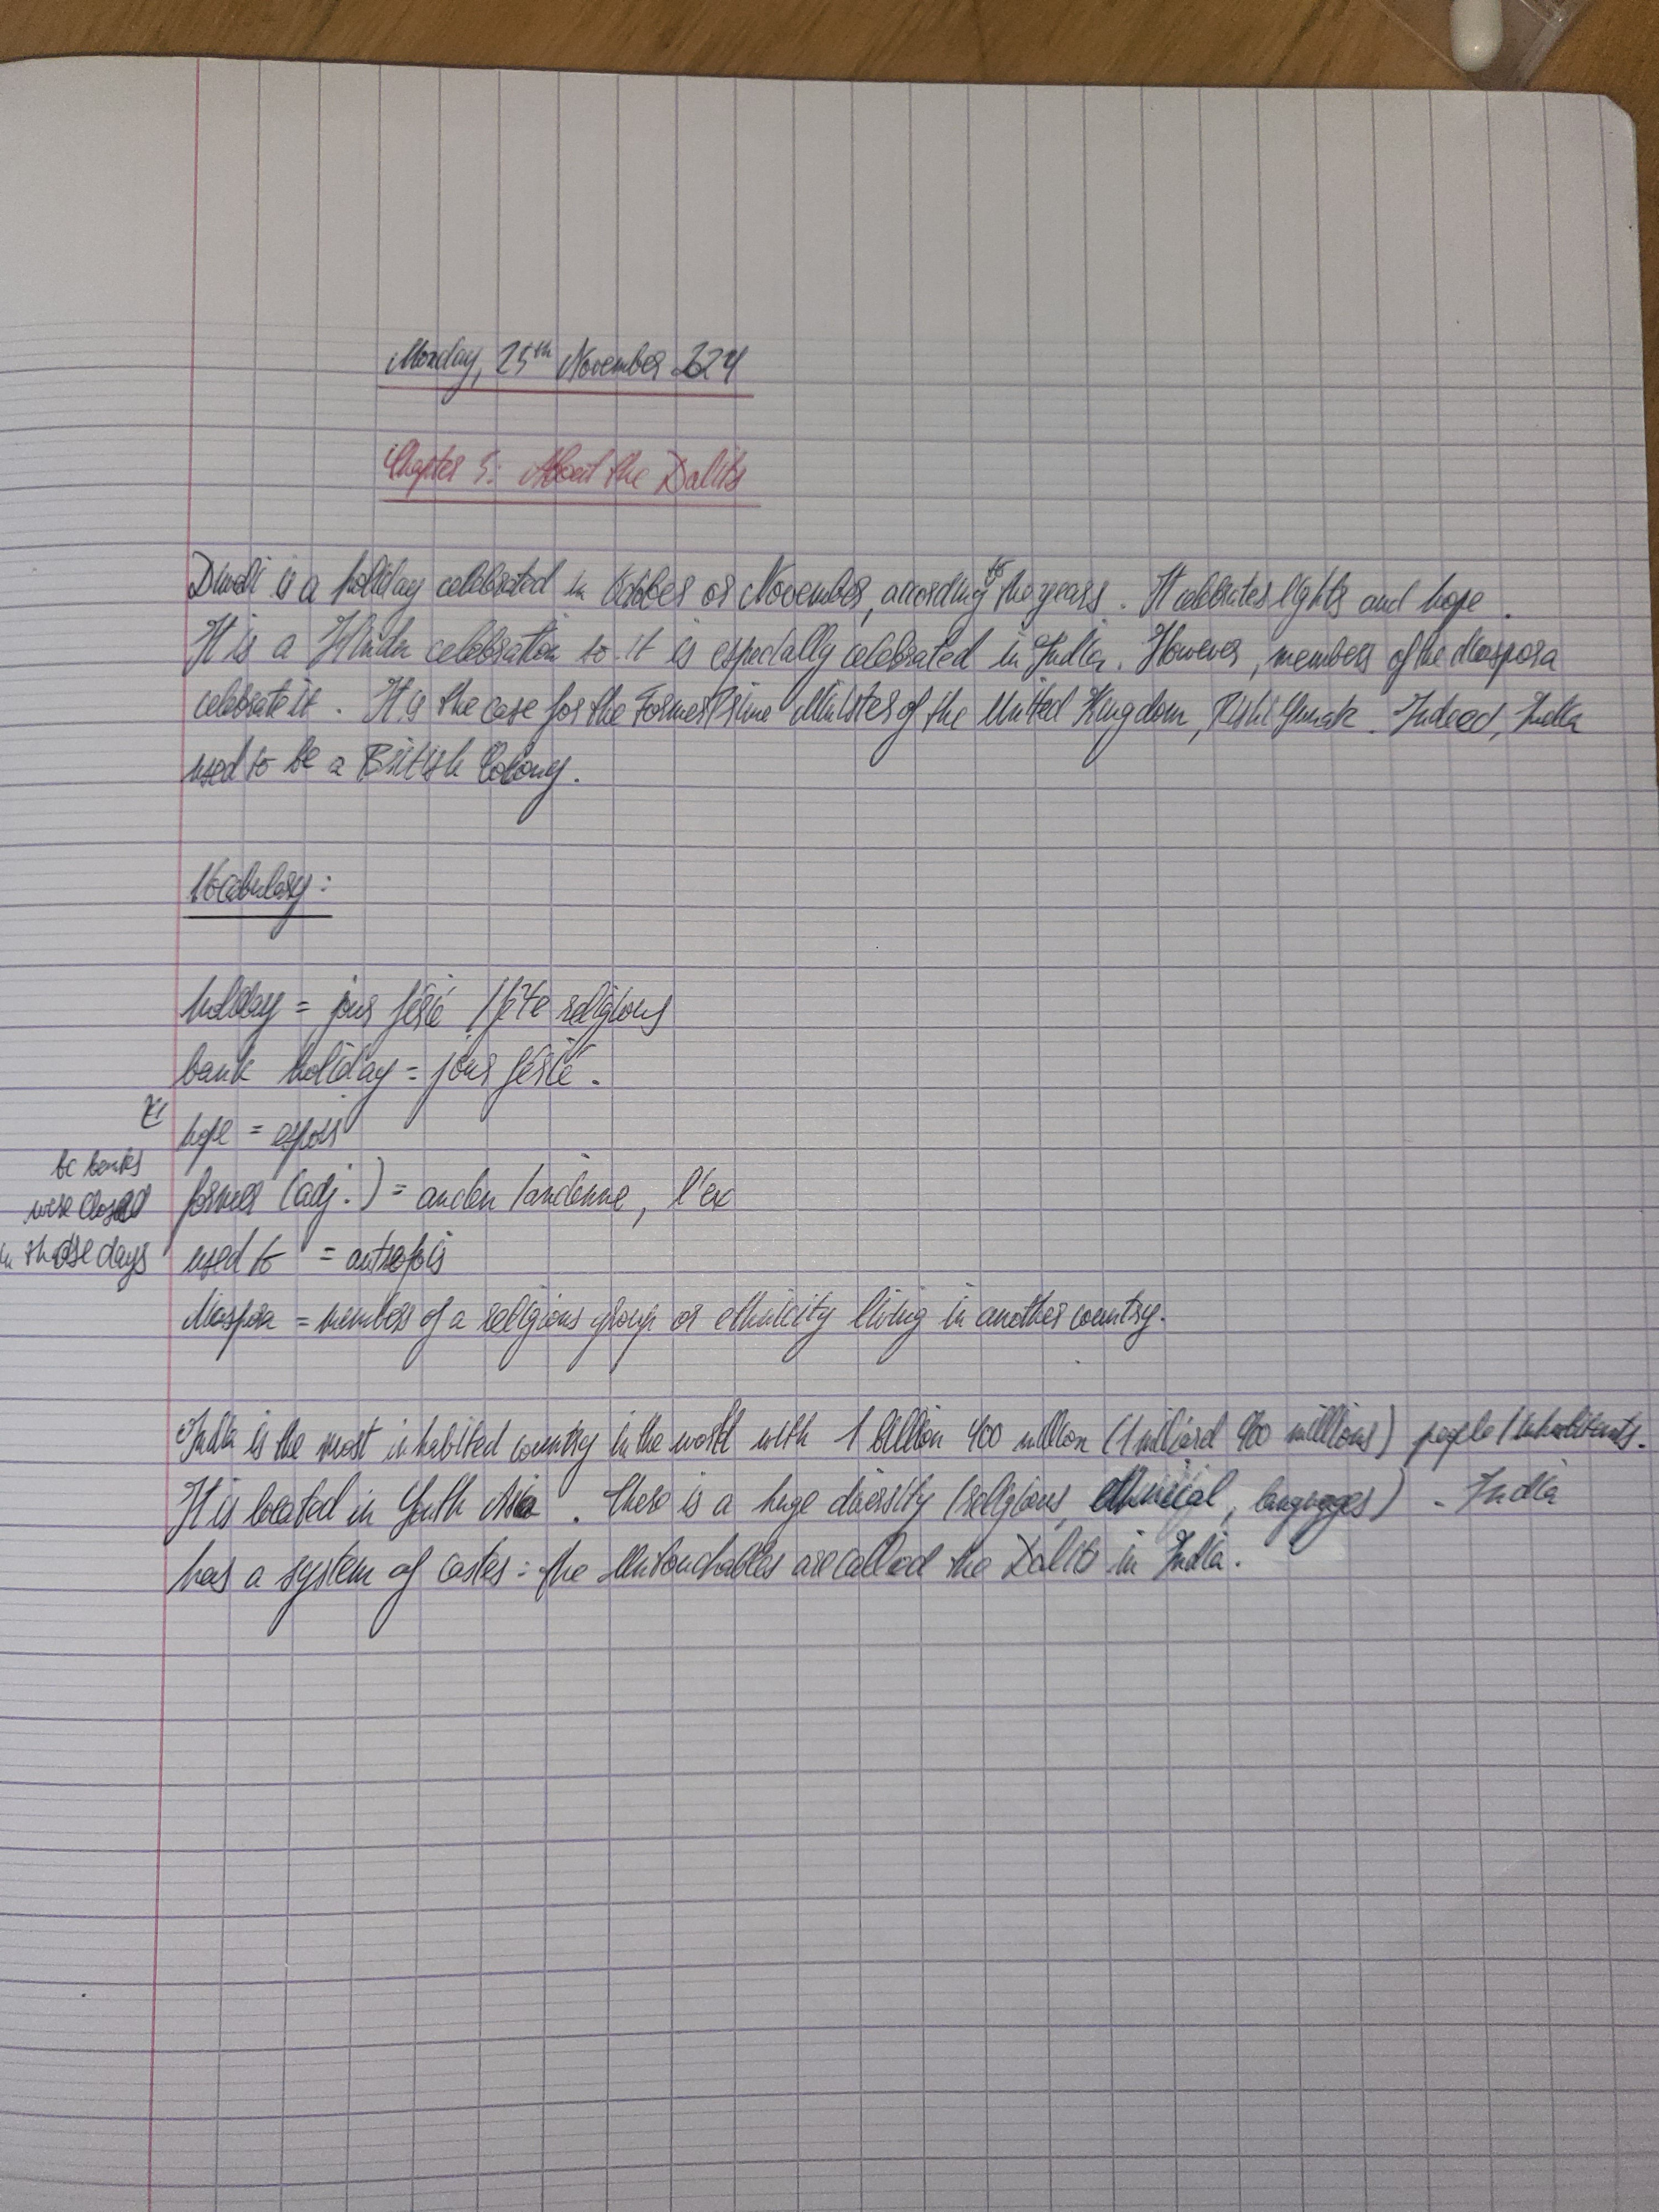 Monday, 25th November 2024
Chapter 5: About the Dalits
Diwali is a holiday celebrated in October or November, according to the years. It celebrates lights and hope.
It is a Hindu celebration so it is especially celebrated in India. However, members of the diaspora
celebrate it. It is the case for the Former Prime Minister of the United Kingdom, Rishi Sunak. Indeed, India
used to be a British Colony.
Vocabulary:
holiday = jour férié / fête religious
bank holiday = jour férié.
hope = espoir
bc banks
were closed
in those days
former (adj.) = ancien / ancienne, l'ex
used to = autrefois
diaspora = members of a religious group or ethnicity living in another country.
India is the most inhabited country in the world with 1 billion 400 million (1 milliard 400 millions) people / inhabitants.
It is located in South Asia. There is a huge diversity (religions, ethnical, languages). India
has a system of castes: the Untouchables are called the Dalits in India.